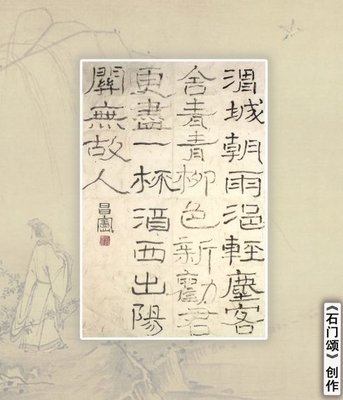 渭城朝雨浥輕塵客
舍青青柳色新勸君
更盡一杯酒西出陽
關無故人
《石门颂》创作